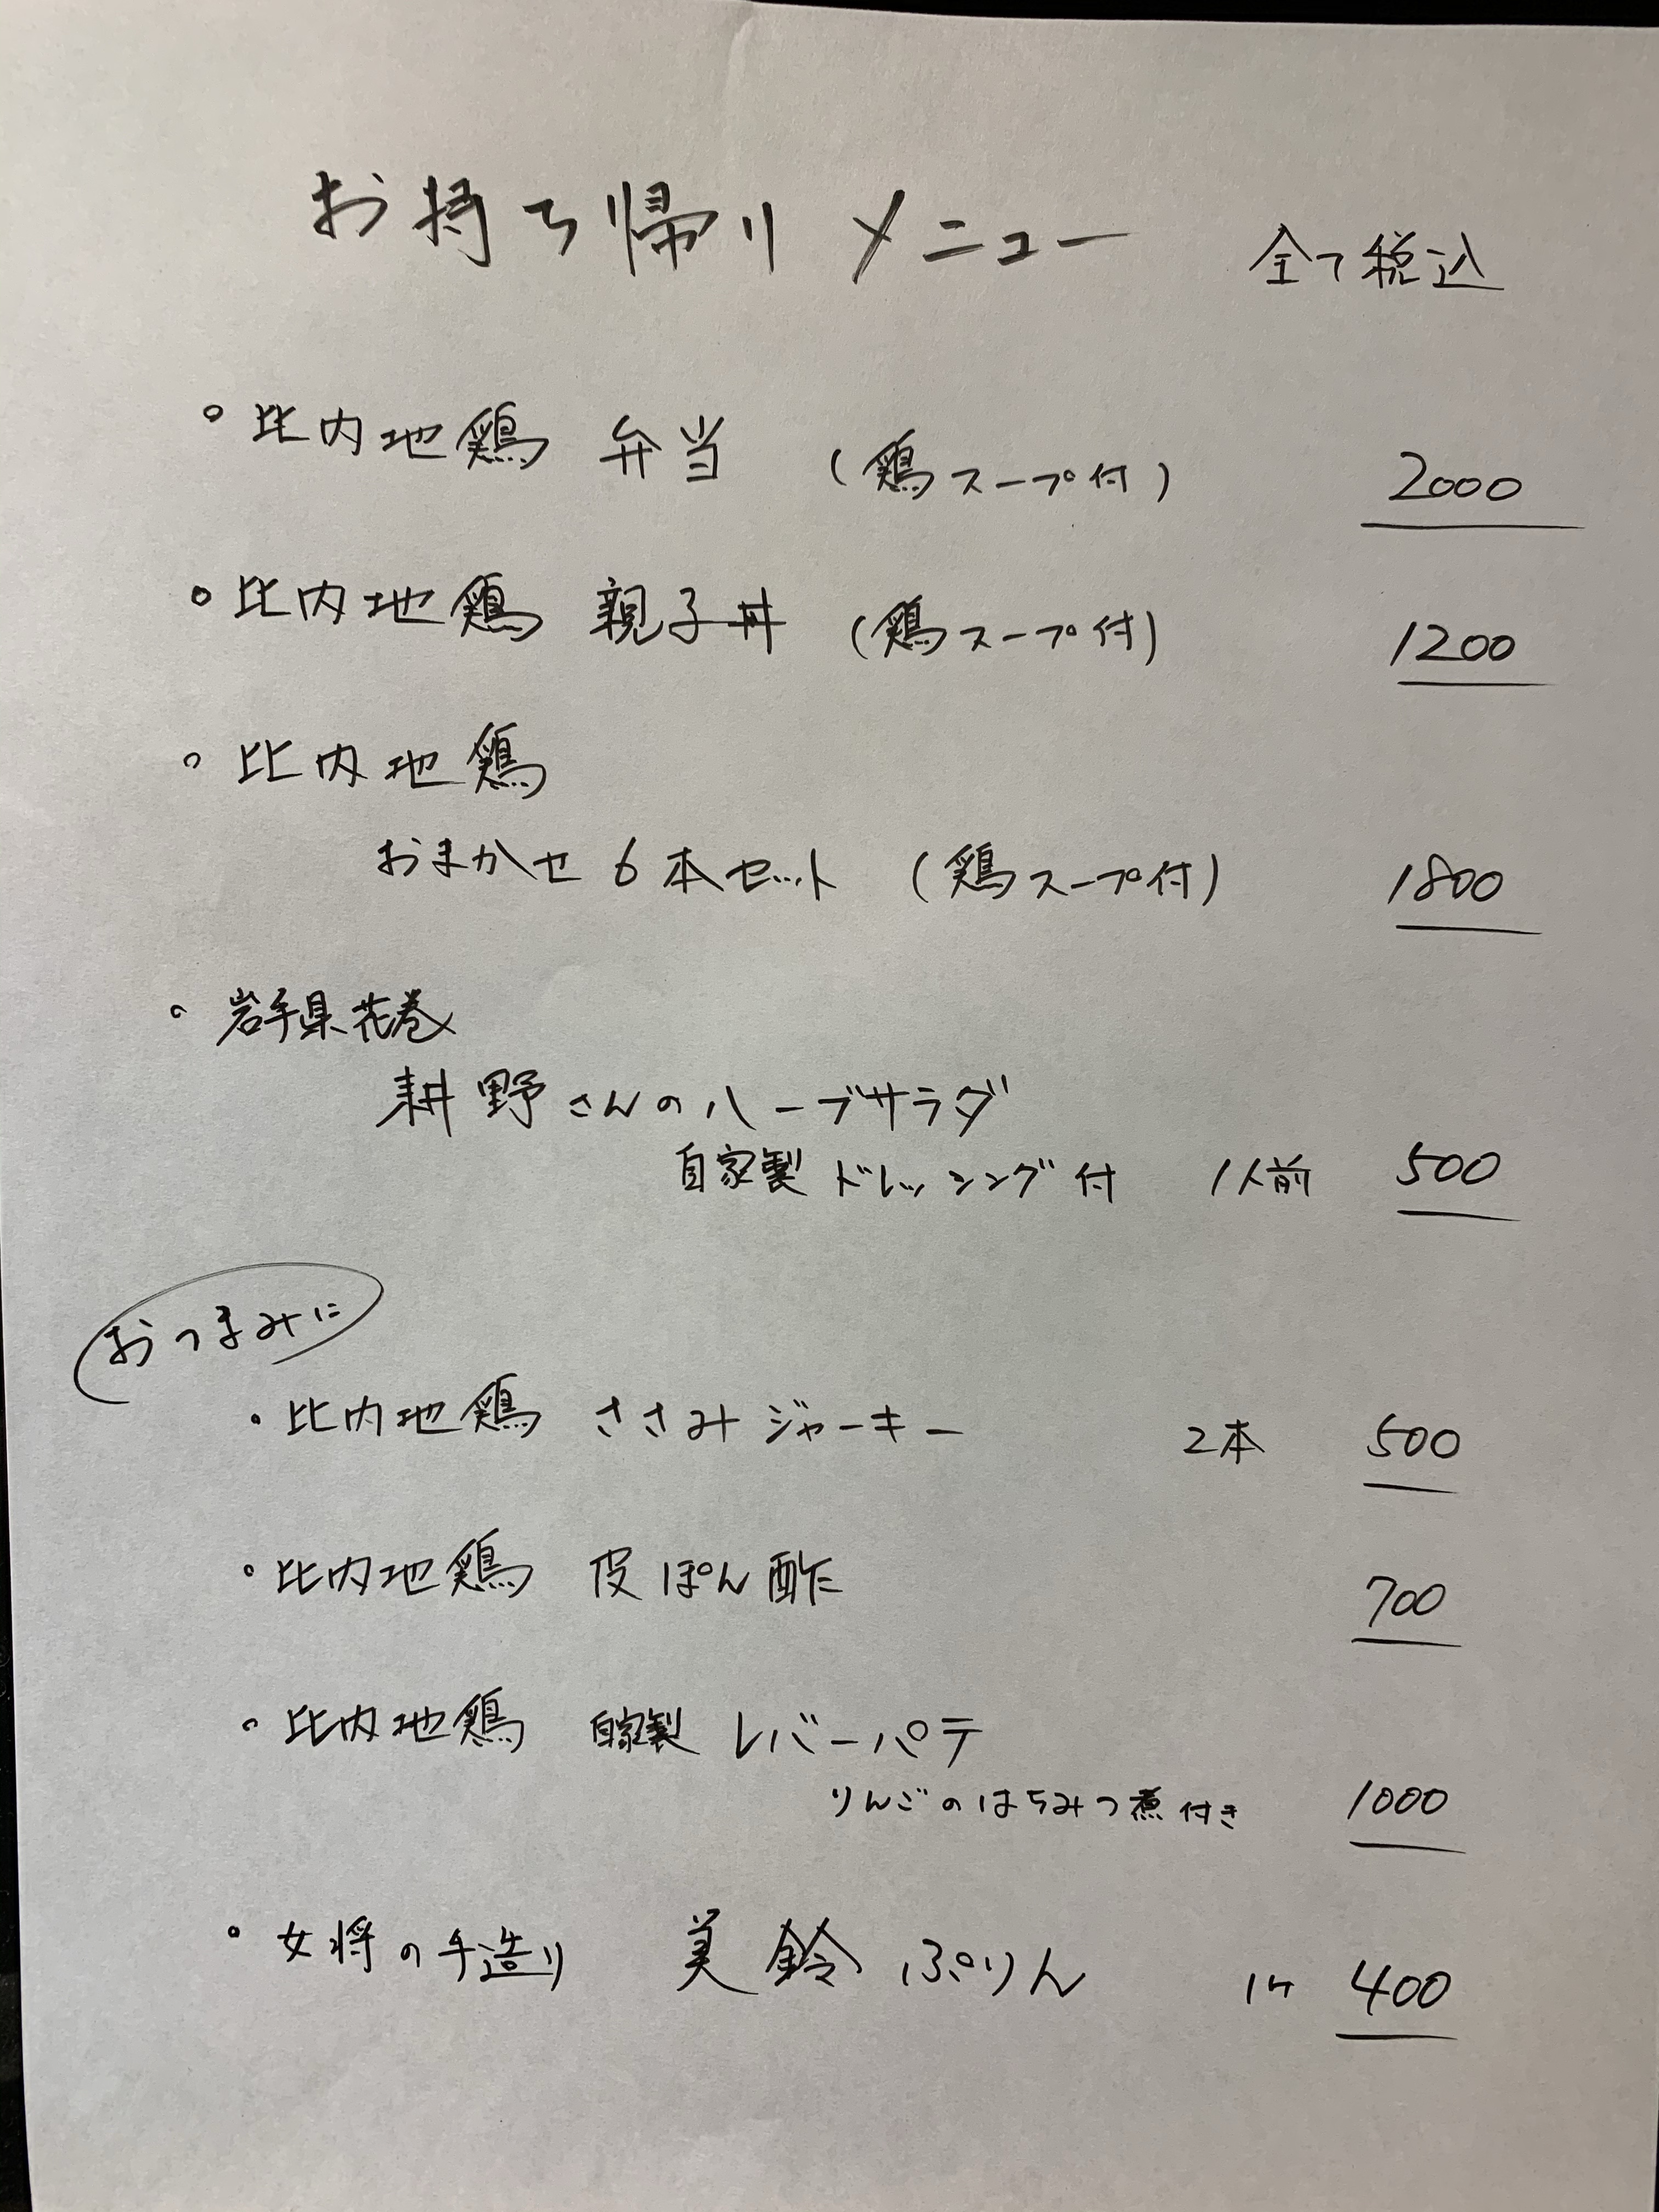 お持ち帰りメニュー 全て税込
。比内地鶏 弁当 (鶏スープ付) 2000
。比内地鶏 親子丼 (鶏スープ付) 1200
。比内地鶏
おまかせ 6本セット (鶏スープ付) 1800
。岩手県花巻
耕野さんのハーブサラダ
自家製 ドレッシング付 1人前 500
おつまみに
・比内地鶏 ささみジャーキー 2本 500
・比内地鶏 皮ぽん酢 700
。比内地鶏 自家製 レバーパテ
りんごのはちみつ煮付き 1000
。女将の手造り 美鈴ぷりん 1ケ 400